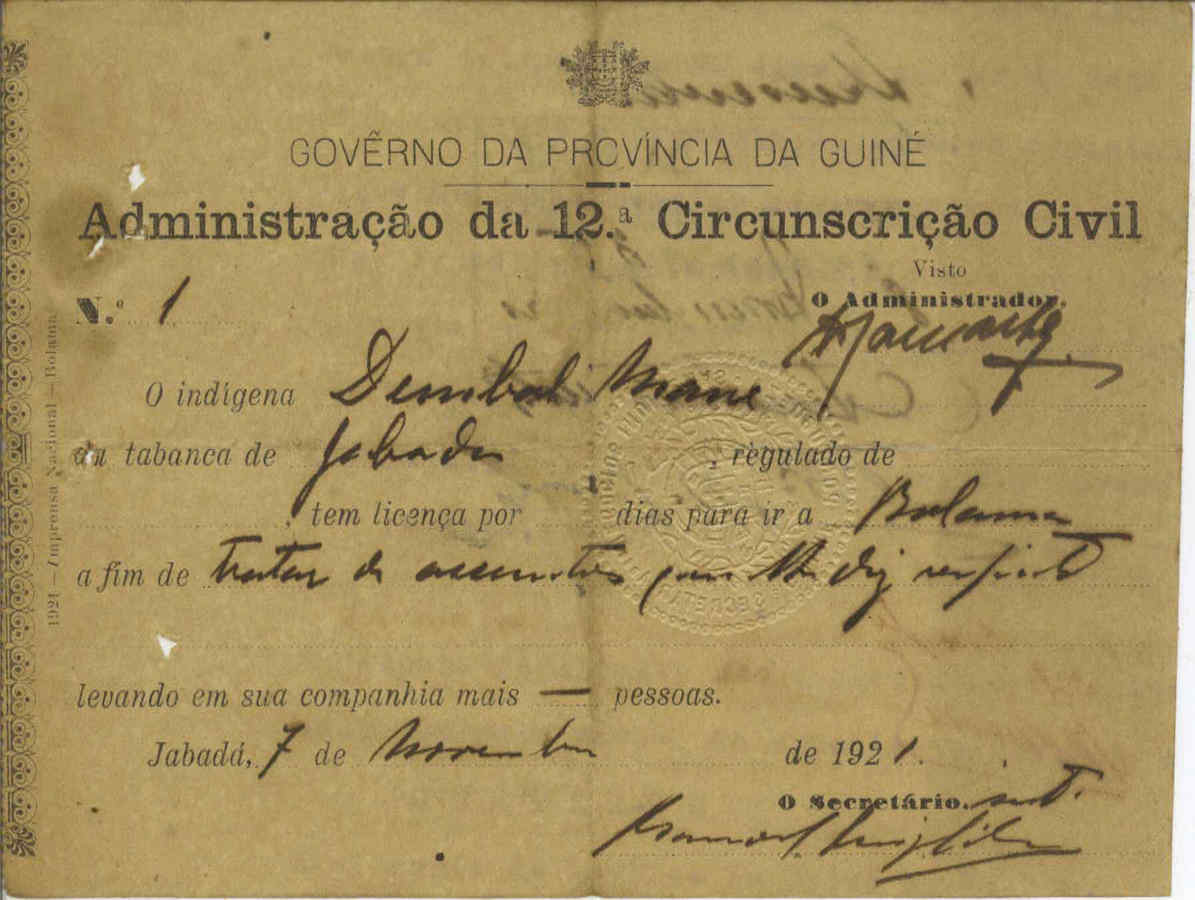 GOVÊRNO DA PROVÍNCIA DA GUINÉ
Administração da 12.ª Circunscrição Civil
Visto
O Administrador,
N.º 1
O indígena Dembah Mane
da tabanca de Jabada, regulado de
, tem licença por dias para ir a Bolama
a fim de tratar de assumtos que lhe diz respeito
levando em sua companhia mais — pessoas.
Jabadá, 7 de Novembro de 1921.
O Secretário, int.
1921—Imprensa Nacional—Bolama